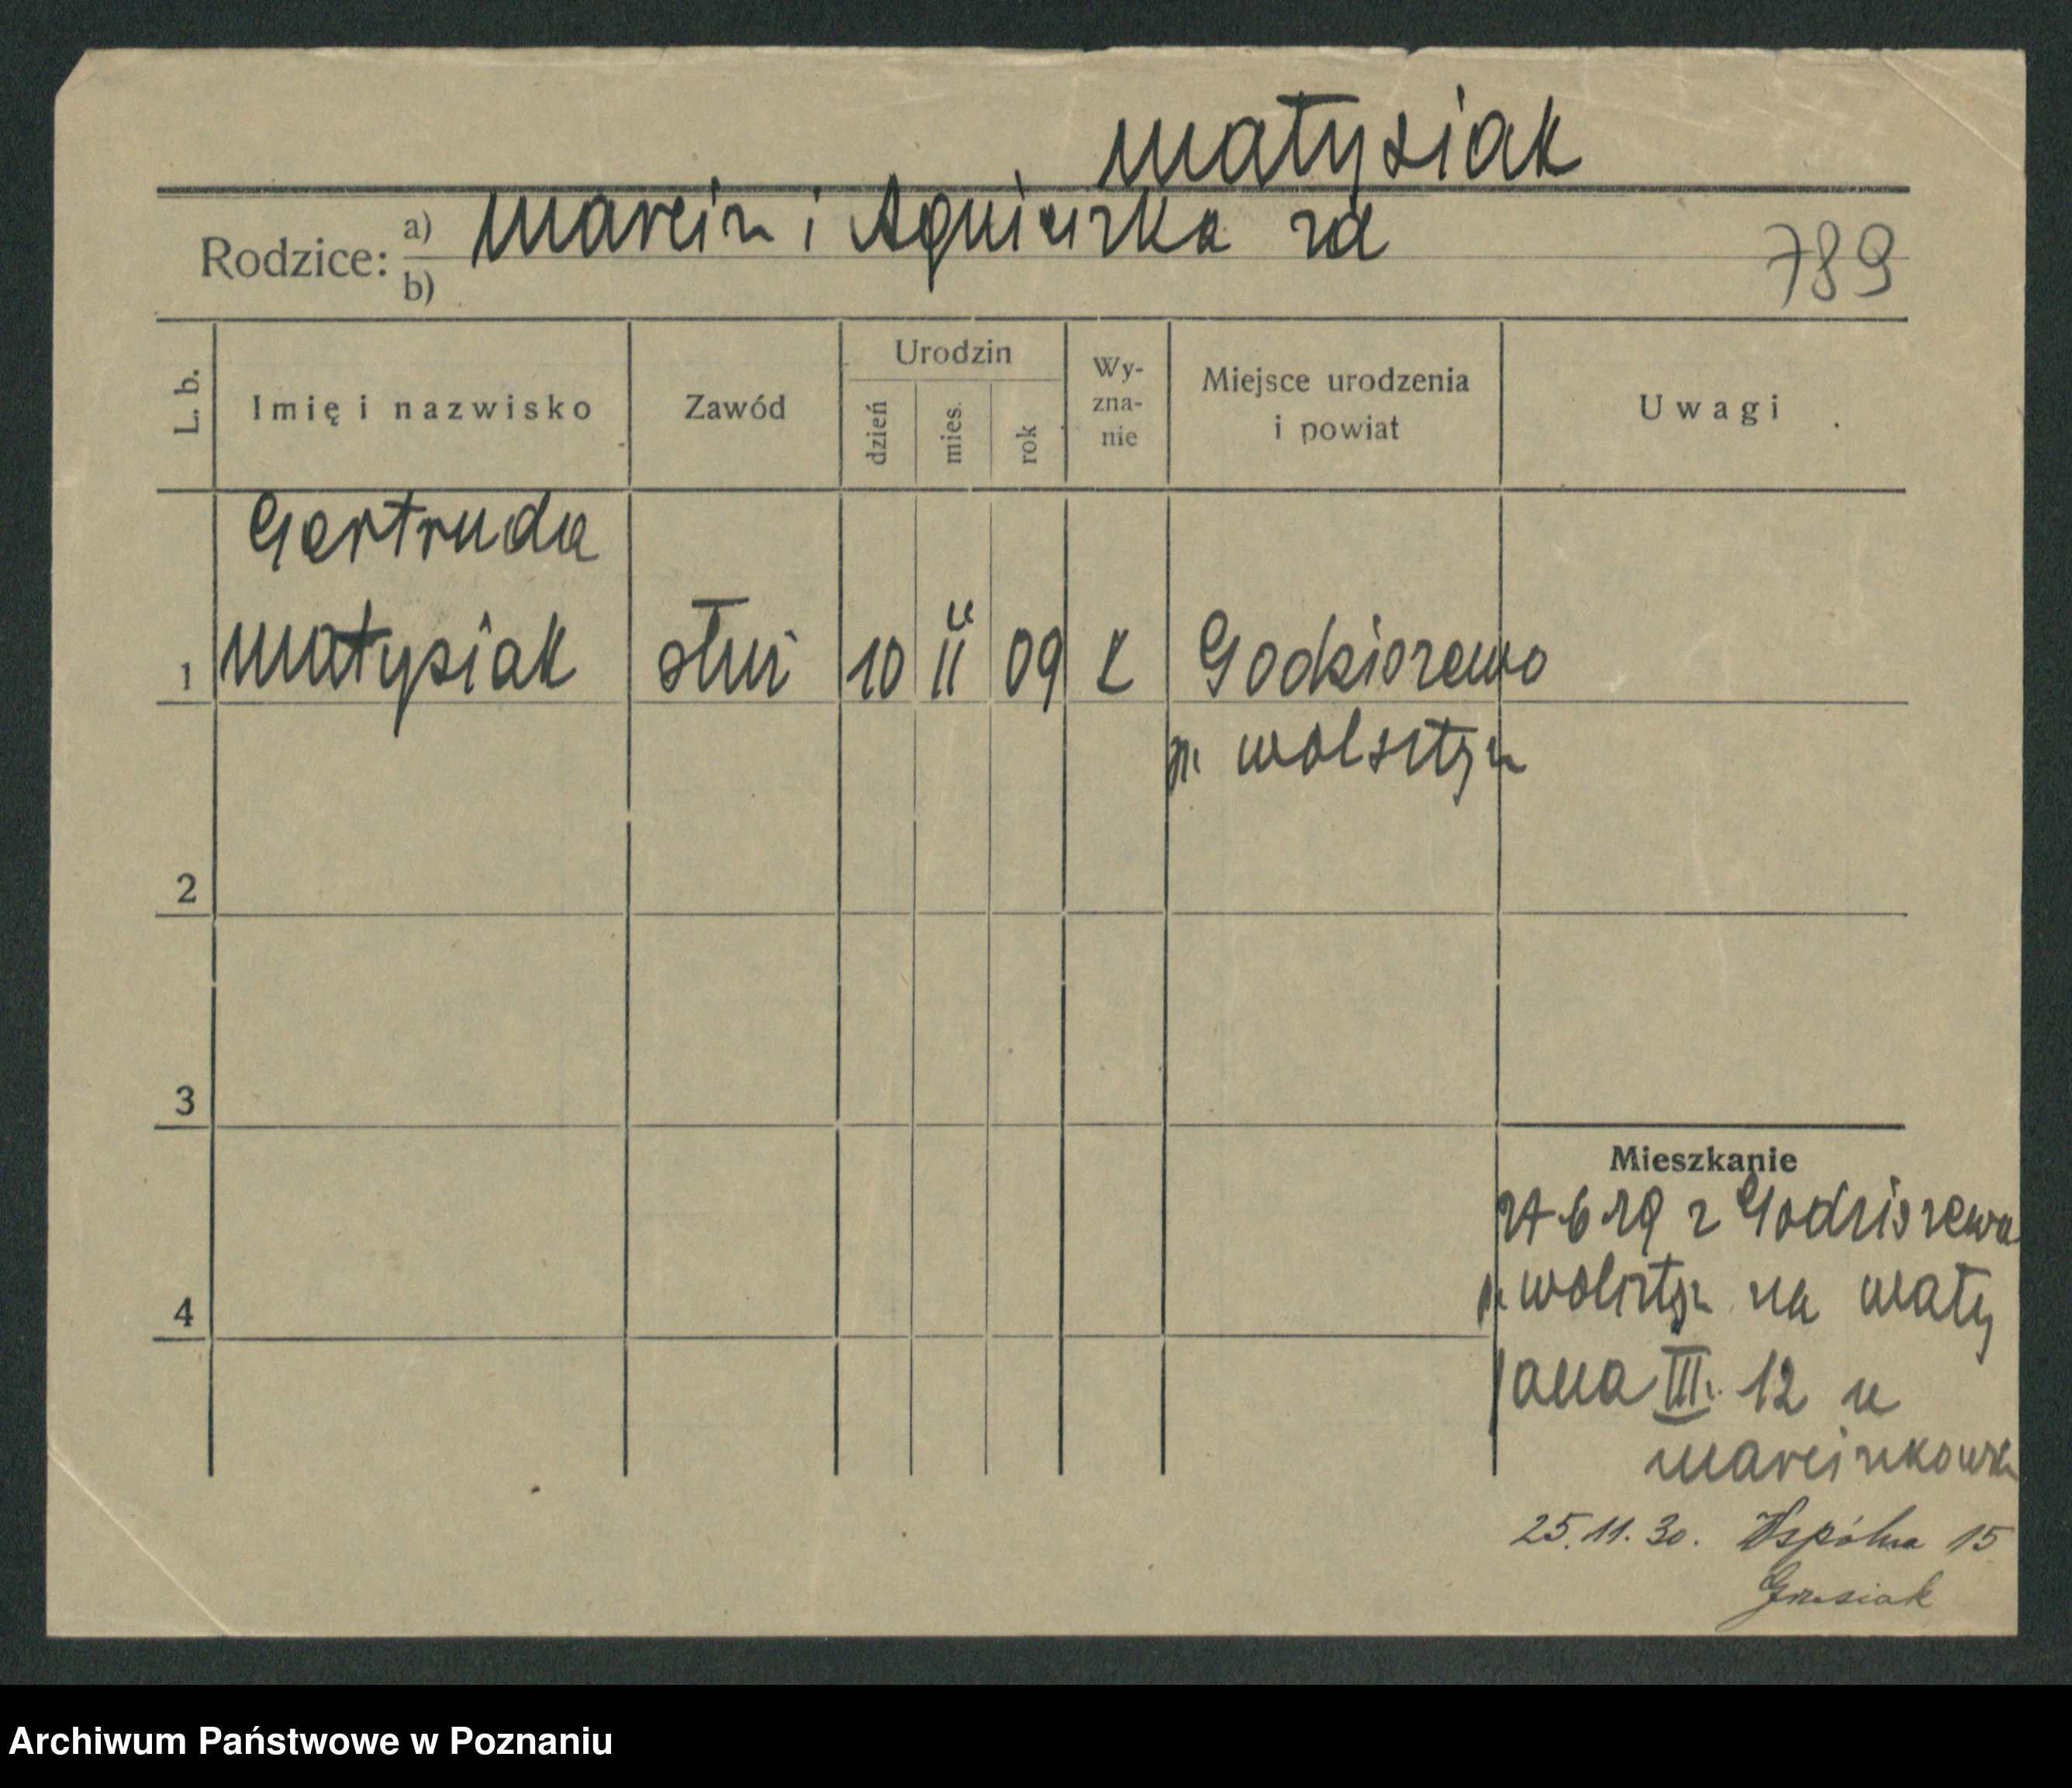 Matysiak
Rodzice: a) Marcin i Agnieszka zd
b)
789
L. b.
Imię i nazwisko
Zawód
Urodzin
dzień
mies.
rok
Wy-
zna-
nie
Miejsce urodzenia
i powiat
Uwagi
Gertruda
1 Matysiak służ 10 II 09 K Godziszewo
p. Wolsztyn
2
3
4
Mieszkanie
6 29 z Godziszewa
p. Wolsztyn na
Jana III. 12 u
Marcinkowska
25.11.30. Wspólna 15
Grzesiak
Archiwum Państwowe w Poznaniu